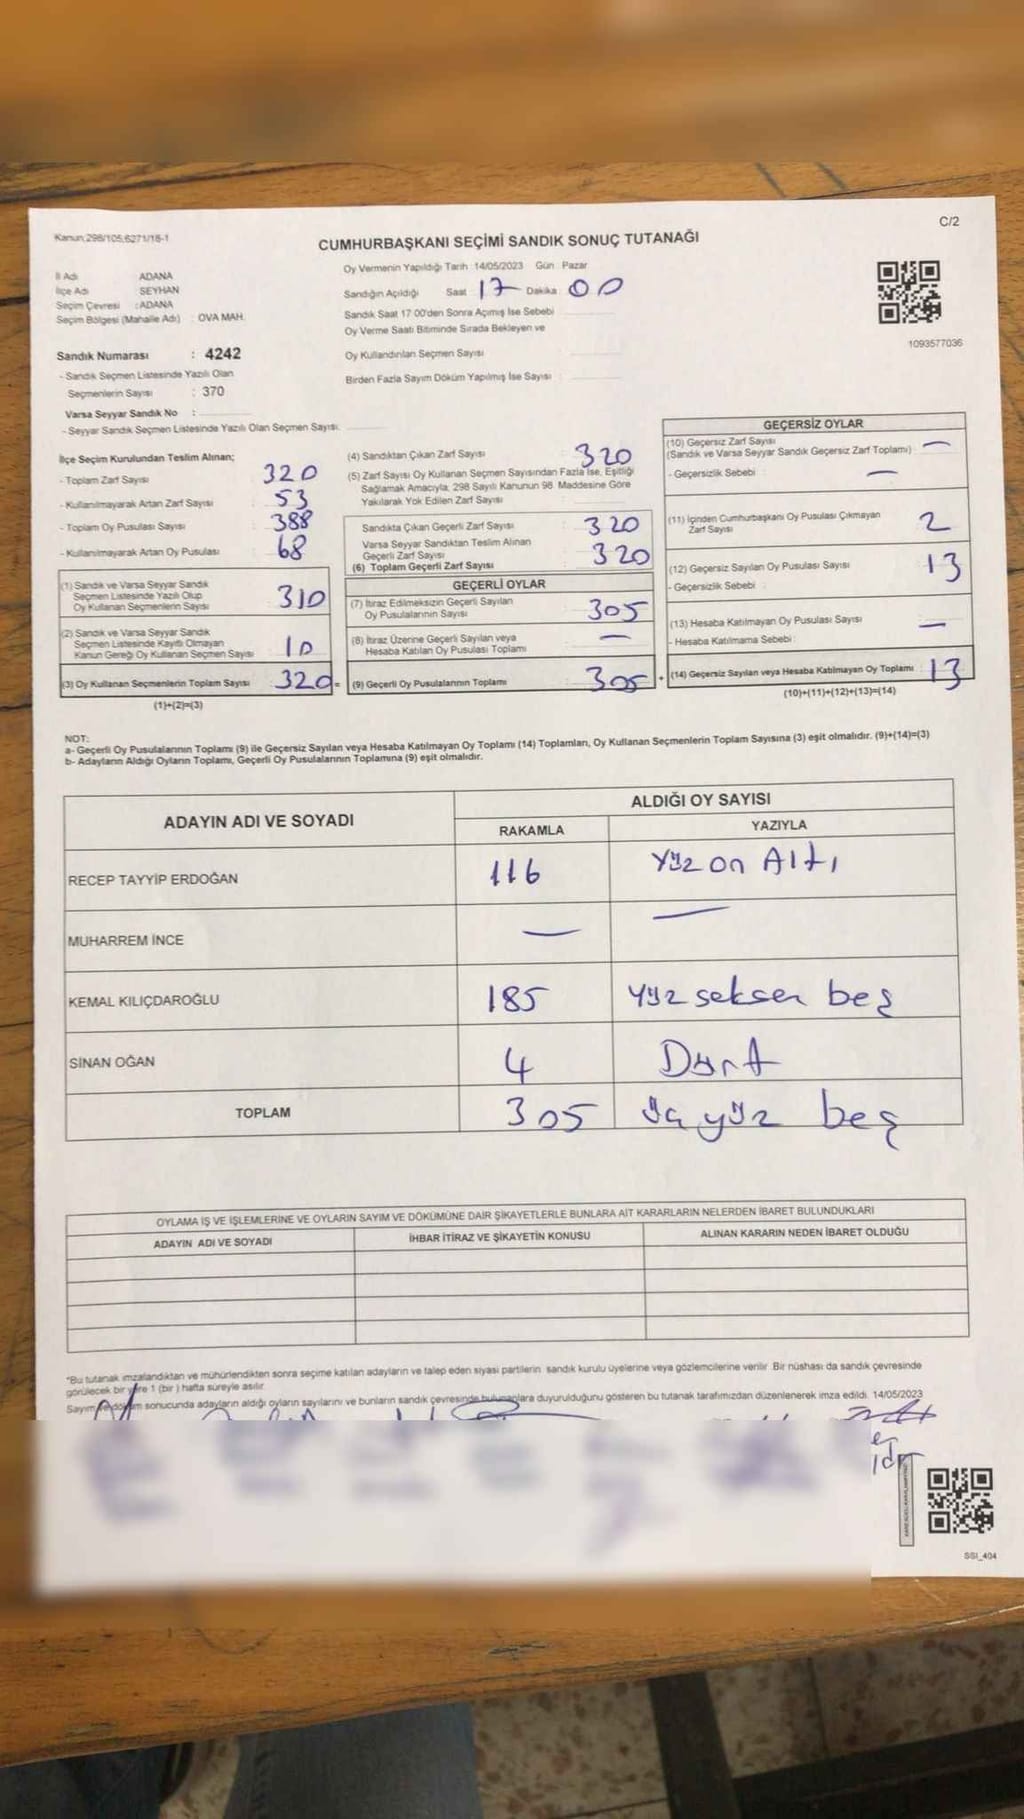 C/2
Kanun:298/105,6271/18-1
CUMHURBAŞKANI SEÇİMİ SANDIK SONUÇ TUTANAĞI
İl Adı ADANA
İlçe Adı SEYHAN
Seçim Çevresi : ADANA
Seçim Bölgesi (Mahalle Adı) : OVA MAH.
Oy Vermenin Yapıldığı Tarih : 14/05/2023 Gün : Pazar
Sandığın Açıldığı Saat 17 Dakika 00
Sandık Saat 17 00'den Sonra Açımış İse Sebebi
Oy Verme Saati Bitiminde Sırada Bekleyen ve
Oy Kullandırılan Seçmen Sayısı
Birden Fazla Sayım Döküm Yapılmış İse Sayısı :
1093577036
Sandık Numarası : 4242
- Sandık Seçmen Listesinde Yazılı Olan
Seçmenlerin Sayısı : 370
Varsa Seyyar Sandık No :
- Seyyar Sandık Seçmen Listesinde Yazılı Olan Seçmen Sayısı:
İlçe Seçim Kurulundan Teslim Alınan;
- Toplam Zarf Sayısı 320
- Kullanılmayarak Artan Zarf Sayısı 53
- Toplam Oy Pusulası Sayısı 388
- Kullanılmayarak Artan Oy Pusulası 68
(1) Sandık ve Varsa Seyyar Sandık
Seçmen Listesinde Yazılı Olup
Oy Kullanan Seçmenlerin Sayısı 310
(2) Sandık ve Varsa Seyyar Sandık
Seçmen Listesinde Kayıtlı Olmayan
Kanun Gereği Oy Kullanan Seçmen Sayısı 10
(3) Oy Kullanan Seçmenlerin Toplam Sayısı 320 =
(1)+(2)=(3)
(4) Sandıktan Çıkan Zarf Sayısı 320
(5) Zarf Sayısı Oy Kullanan Seçmen Sayısından Fazla İse, Eşitliği
Sağlamak Amacıyla, 298 Sayılı Kanunun 98. Maddesine Göre
Yakılarak Yok Edilen Zarf Sayısı
Sandıkta Çıkan Geçerli Zarf Sayısı 320
Varsa Seyyar Sandıktan Teslim Alınan
Geçerli Zarf Sayısı
(6) Toplam Geçerli Zarf Sayısı 320
GEÇERLİ OYLAR
(7) İtiraz Edilmeksizin Geçerli Sayılan
Oy Pusulalarının Sayısı 305
(8) İtiraz Üzerine Geçerli Sayılan veya
Hesaba Katılan Oy Pusulası Toplamı —
(9) Geçerli Oy Pusulalarının Toplamı 305 +
GEÇERSİZ OYLAR
(10) Geçersiz Zarf Sayısı —
(Sandık ve Varsa Seyyar Sandık Geçersiz Zarf Toplamı)
- Geçersizlik Sebebi : —
(11) İçinden Cumhurbaşkanı Oy Pusulası Çıkmayan
Zarf Sayısı 2
(12) Geçersiz Sayılan Oy Pusulası Sayısı 13
- Geçersizlik Sebebi
(13) Hesaba Katılmayan Oy Pusulası Sayısı —
- Hesaba Katılmama Sebebi :
(14) Geçersiz Sayılan veya Hesaba Katılmayan Oy Toplamı 13
(10)+(11)+(12)+(13)=(14)
NOT:
a- Geçerli Oy Pusulalarının Toplamı (9) ile Geçersiz Sayılan veya Hesaba Katılmayan Oy Toplamı (14) Toplamları, Oy Kullanan Seçmenlerin Toplam Sayısına (3) eşit olmalıdır. (9)+(14)=(3)
b- Adayların Aldığı Oyların Toplamı, Geçerli Oy Pusulalarının Toplamına (9) eşit olmalıdır.
ADAYIN ADI VE SOYADI
ALDIĞI OY SAYISI
RAKAMLA YAZIYLA
RECEP TAYYİP ERDOĞAN 116 Yüz on Altı
MUHARREM İNCE — —
KEMAL KILIÇDAROĞLU 185 Yüz seksen beş
SİNAN OĞAN 4 Dört
TOPLAM 305 üç yüz beş
OYLAMA İŞ VE İŞLEMLERİNE VE OYLARIN SAYIM VE DÖKÜMÜNE DAİR ŞİKAYETLERLE BUNLARA AİT KARARLARIN NELERDEN İBARET BULUNDUKLARI
ADAYIN ADI VE SOYADI İHBAR İTİRAZ VE ŞİKAYETİN KONUSU ALINAN KARARIN NEDEN İBARET OLDUĞU
*Bu tutanak imzalandıktan ve mühürlendikten sonra seçime katılan adayların ve talep eden siyasi partilerin sandık kurulu üyelerine veya gözlemcilerine verilir. Bir nüshası da sandık çevresinde
görülecek bir yere 1 (bir ) hafta süreyle asılır.
Sayım ve döküm sonucunda adayların aldığı oyların sayılarını ve bunların sandık çevresinde bulunanlara duyurulduğunu gösteren bu tutanak tarafımızdan düzenlenerek imza edildi. 14/05/2023
SSI_404